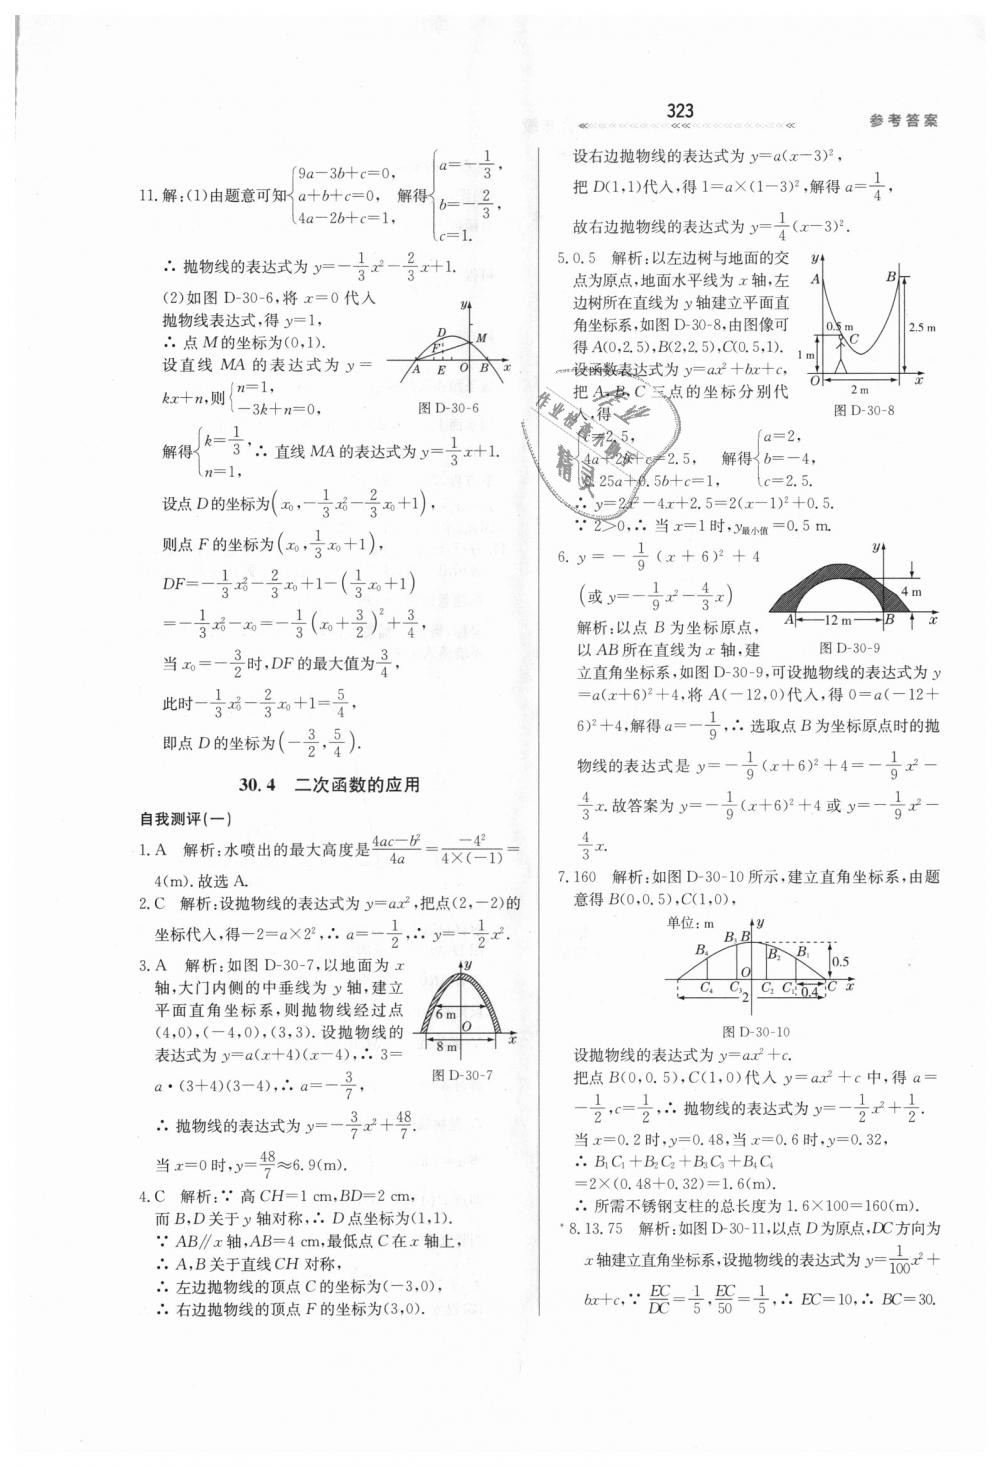 323
参考答案
11.解:(1)由题意可知{9a-3b+c=0, a+b+c=0, 4a-2b+c=1, 解得{a=-1/3, b=-2/3, c=1.
∴ 抛物线的表达式为 y=-1/3x²-2/3x+1.
(2)如图 D-30-6,将 x=0 代入
抛物线表达式,得 y=1,
∴ 点 M 的坐标为(0,1).
设直线 MA 的表达式为 y=
kx+n,则{n=1, -3k+n=0,
图 D-30-6
解得{k=1/3, n=1, ∴ 直线 MA 的表达式为 y=1/3x+1.
设点 D 的坐标为(x₀,-1/3x₀²-2/3x₀+1),
则点 F 的坐标为(x₀,1/3x₀+1),
DF=-1/3x₀²-2/3x₀+1-(1/3x₀+1)
=-1/3x₀²-x₀=-1/3(x₀+3/2)²+3/4,
当 x₀=-3/2时,DF 的最大值为3/4,
此时-1/3x₀²-2/3x₀+1=5/4,
即点 D 的坐标为(-3/2,5/4).
30.4 二次函数的应用
自我测评(一)
1.A 解析:水喷出的最大高度是(4ac-b²)/4a=-4²/(4×(-1))=
4(m).故选 A.
2.C 解析:设抛物线的表达式为 y=ax²,把点(2,-2)的
坐标代入,得-2=a×2²,∴ a=-1/2,∴ y=-1/2x².
3.A 解析:如图 D-30-7,以地面为 x
轴,大门内侧的中垂线为 y 轴,建立
平面直角坐标系,则抛物线经过点
(4,0),(-4,0),(3,3).设抛物线的
表达式为 y=a(x+4)(x-4),∴ 3=
a·(3+4)(3-4),∴ a=-3/7,
y
6 m
O
x
8 m
图 D-30-7
∴ 抛物线的表达式为 y=-3/7x²+48/7.
当 x=0 时,y=48/7≈6.9(m).
4.C 解析:∵ 高 CH=1 cm,BD=2 cm,
而 B,D 关于 y 轴对称,∴ D 点坐标为(1,1).
∵ AB∥x 轴,AB=4 cm,最低点 C 在 x 轴上,
∴ A,B 关于直线 CH 对称,
∴ 左边抛物线的顶点 C 的坐标为(-3,0),
∴ 右边抛物线的顶点 F 的坐标为(3,0).
设右边抛物线的表达式为 y=a(x-3)²,
把 D(1,1)代入,得 1=a×(1-3)²,解得 a=1/4,
故右边抛物线的表达式为 y=1/4(x-3)².
5.0.5 解析:以左边树与地面的交
点为原点,地面水平线为 x 轴,左
边树所在直线为 y 轴建立平面直
角坐标系,如图 D-30-8,由图像可
得 A(0,2.5),B(2,2.5),C(0.5,1).
设函数表达式为 y=ax²+bx+c,
把 A,B,C 三点的坐标分别代
入,得
y
A
B
0.5 m
C
2.5 m
1 m
O
2 m
x
图 D-30-8
{c=2.5, 4a+2b+c=2.5, 0.25a+0.5b+c=1, 解得{a=2, b=-4, c=2.5.
∴ y=2x²-4x+2.5=2(x-1)²+0.5.
∵ 2>0,∴ 当 x=1 时,y最小值=0.5 m.
6. y=-1/9(x+6)²+4
(或 y=-1/9x²-4/3x)
y
4 m
A
12 m
B
x
图 D-30-9
解析:以点 B 为坐标原点,
以 AB 所在直线为 x 轴,建
立直角坐标系,如图 D-30-9,可设抛物线的表达式为 y
=a(x+6)²+4,将 A(-12,0)代入,得 0=a(-12+
6)²+4,解得 a=-1/9,∴ 选取点 B 为坐标原点时的抛
物线的表达式是 y=-1/9(x+6)²+4=-1/9x²-
4/3x.故答案为 y=-1/9(x+6)²+4 或 y=-1/9x²-
4/3x.
7.160 解析:如图 D-30-10 所示,建立直角坐标系,由题
意得 B(0,0.5),C(1,0),
单位: m
y
B₄ B₃ B B₂ B₁
0.5
O
C₄ C₃ C₂ C₁ C x
0.4
2
图 D-30-10
设抛物线的表达式为 y=ax²+c.
把点 B(0,0.5),C(1,0)代入 y=ax²+c 中,得 a=
-1/2,c=1/2,∴ 抛物线的表达式为 y=-1/2x²+1/2.
当 x=0.2 时,y=0.48,当 x=0.6 时,y=0.32,
∴ B₁C₁+B₂C₂+B₃C₃+B₄C₄
=2×(0.48+0.32)=1.6(m).
∴ 所需不锈钢支柱的总长度为 1.6×100=160(m).
*8.13.75 解析:如图 D-30-11,以点 D 为原点,DC 方向为
x 轴建立直角坐标系,设抛物线的表达式为 y=1/100x²+
bx+c,∵ EC/DC=1/5,EC/50=1/5,∴ EC=10,∴ BC=30.